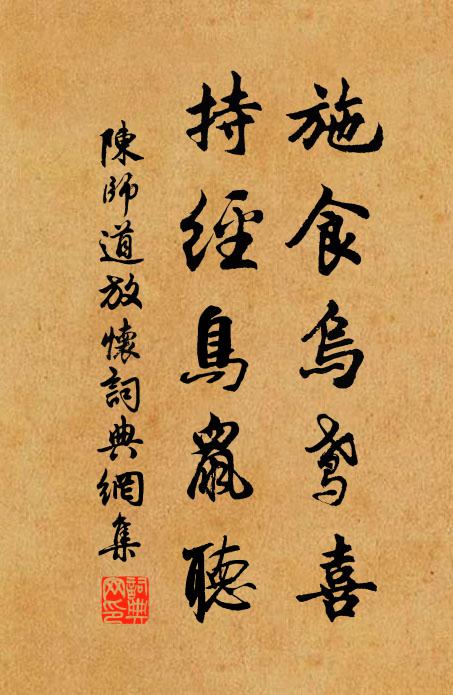 施食烏鳶喜
持經鳥鼠聽
陳師道放懷詞典網集
詞典网印